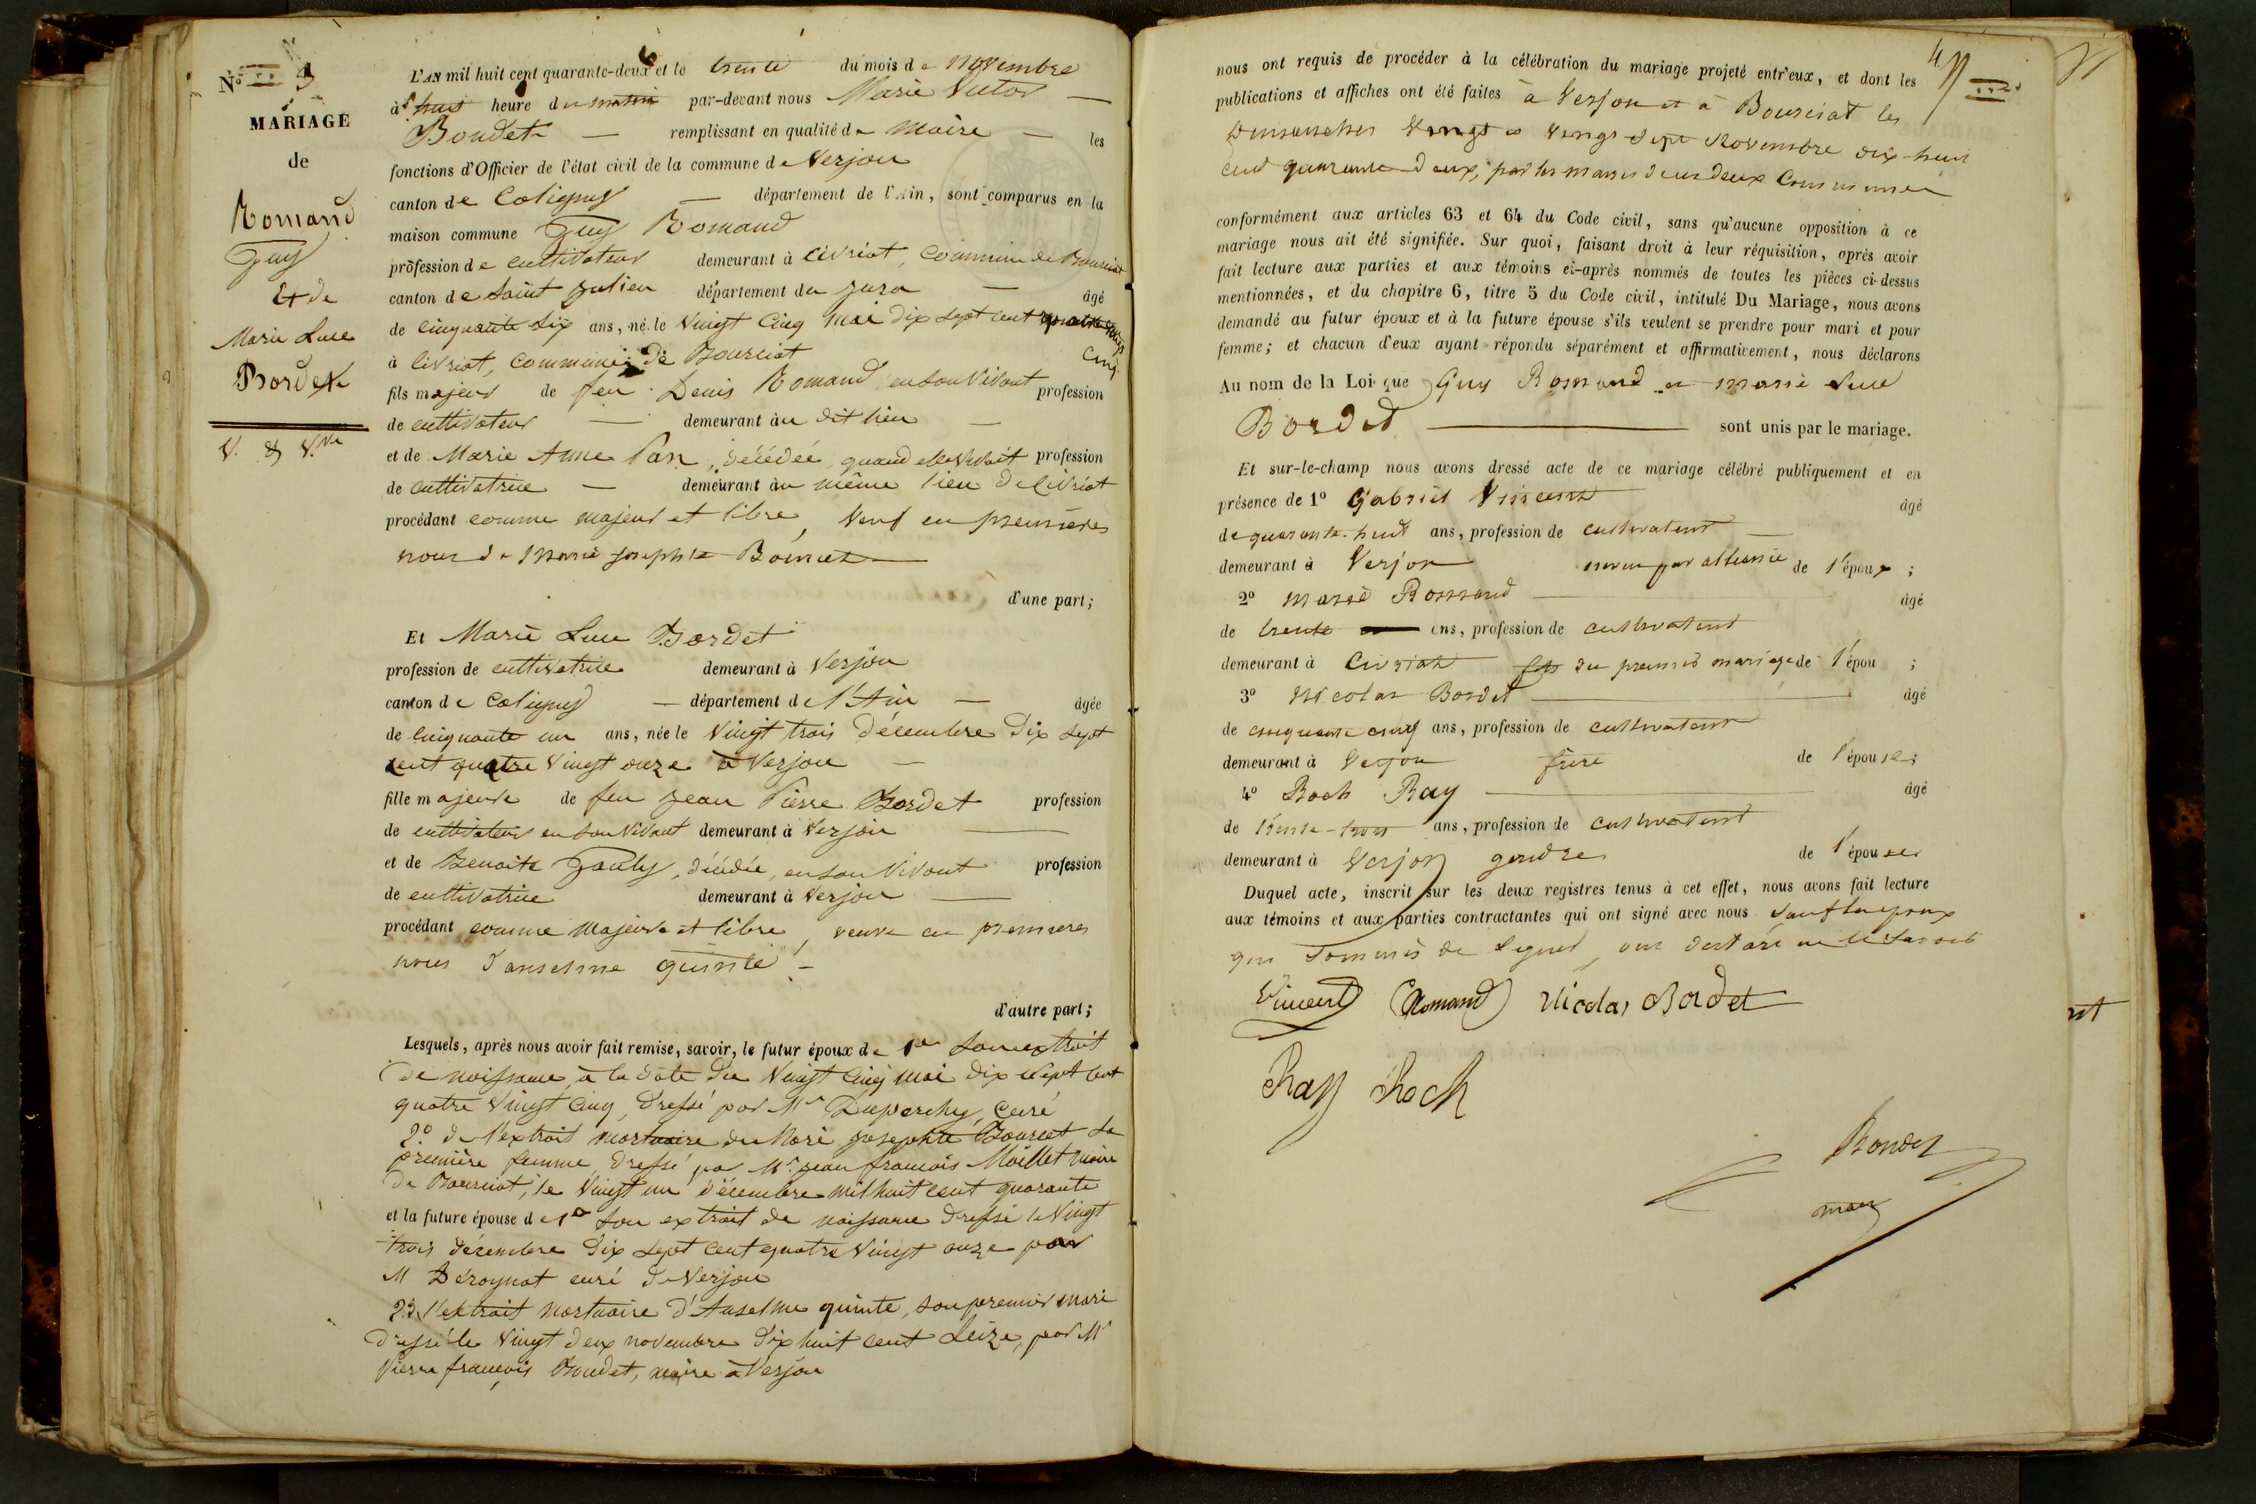 Nº 4
MARIAGE
de
Romand
Guy
Et de
Marie Luce
Bordet
V. & V.ve
L'AN mil huit cent quarante-deux et le trente du mois de Novembre
à huit heure du matin par-devant nous Marie Victor
Bondet remplissant en qualité de Maire les
fonctions d'Officier de l'état civil de la commune de Verjon
canton de Coligny département de l'Ain, sont comparus en la
maison commune Guy Romand
profession de cultivateur demeurant à Civriat, Commune de Bourciat
canton de Saint Julien département du Jura âgé
de cinquante Six ans, né le Vingt Cinq Mai dix sept cent quatre vingt
cinq
à Civriat, commune de Bourciat
fils majeur de feu Denis Romand en son Vivant profession
de cultivateur demeurant au dit lieu
et de Marie Anne Pan, décédée, quand elle Vivait profession
de cultivatrice demeurant au même lieu de Civriat
procédant comme majeur et libre, Veuf en premières
noces de Marie Josephte
d'une part;
Et Marie Luce Bordet
profession de cultivatrice demeurant à Verjon
canton de Coligny département de l'Ain âgée
de cinquante un ans, née le Vingt trois Décembre Dix Sept
cent quatre Vingt onze à Verjon
fille majeure de feu Jean Pierre Bordet profession
de cultivateur en son Vivant demeurant à Verjon
et de Benoite Pauly, décédée, en son Vivant profession
de cultivatrice demeurant à Verjon
procédant comme Majeure et libre, veuve en premieres
noces d'anselme quinte
d'autre part;
Lesquels, après nous avoir fait remise, savoir, le futur époux de 1° Son extrait
de naissance, à la date du Vingt Cinq Mai Dix Sept cent
quatre Vingt Cinq, dressé par Mr Duperchy, Curé
2.° de l'extrait mortuaire de Marie Josephte Sa
première femme, dressé par Mr. Jean françois Maillet maire
de Bourciat, le Vingt un Décembre Mil huit cent quarante
et la future épouse de 1° Son extrait de naissance dressé le Vingt
trois Décembre Dix Sept Cent quatre Vingt onze par
M Déroynat curé de Verjon
2° l'extrait mortuaire d'Anselme quinte, son premier mari
dressé le Vingt deux novembre Dix huit cent Seize, par Mr
Pierre françois Bondet, maire à Verjon
4
nous ont requis de procéder à la célébration du mariage projeté entr'eux, et dont les
publications et affiches ont été faites à Verjon et à Bourciat les
Dimanches Vingt et Vingt Sept Novembre dix-huit
cent quarante Deux, par les maires des deux Communes
conformément aux articles 63 et 64 du Code civil, sans qu'aucune opposition à ce
mariage nous ait été signifiée. Sur quoi, faisant droit à leur réquisition, après avoir
fait lecture aux parties et aux témoins ci-après nommés de toutes les pièces ci-dessus
mentionnées, et du chapitre 6, titre 5 du Code civil, intitulé Du Mariage, nous avons
demandé au futur époux et à la future épouse s'ils veulent se prendre pour mari et pour
femme; et chacun d'eux ayant répondu séparément et affirmativement, nous déclarons
Au nom de la Loi que Guy Romand et Marie Luce
Bordet sont unis par le mariage.
Et sur-le-champ nous avons dressé acte de ce mariage célébré publiquement et en
présence de 1° Gabriel Vincent âgé
de quarante-huit ans, profession de cultivateur
demeurant à Verjon neveu par alliance de l'époux;
2° Marie Romand âgé
de trente ans, profession de cultivateur
demeurant à Civriat fils du premier mariage de l'épou;
3° Nicolas Bordet âgé
de cinquante cinq ans, profession de cultivateur
demeurant à Verjon frère de l'épouse;
4° Roch Ray âgé
de trente-trois ans, profession de cultivateur
demeurant à Verjon gendre de l'épouse
Duquel acte, inscrit sur les deux registres tenus à cet effet, nous avons fait lecture
aux témoins et aux parties contractantes qui ont signé avec nous Sauf les époux
qui Sommés de Signer, ont déclaré ne le Savoir
Vincent Romand Nicolas Bordet
Ray Roch
Bondet
maire